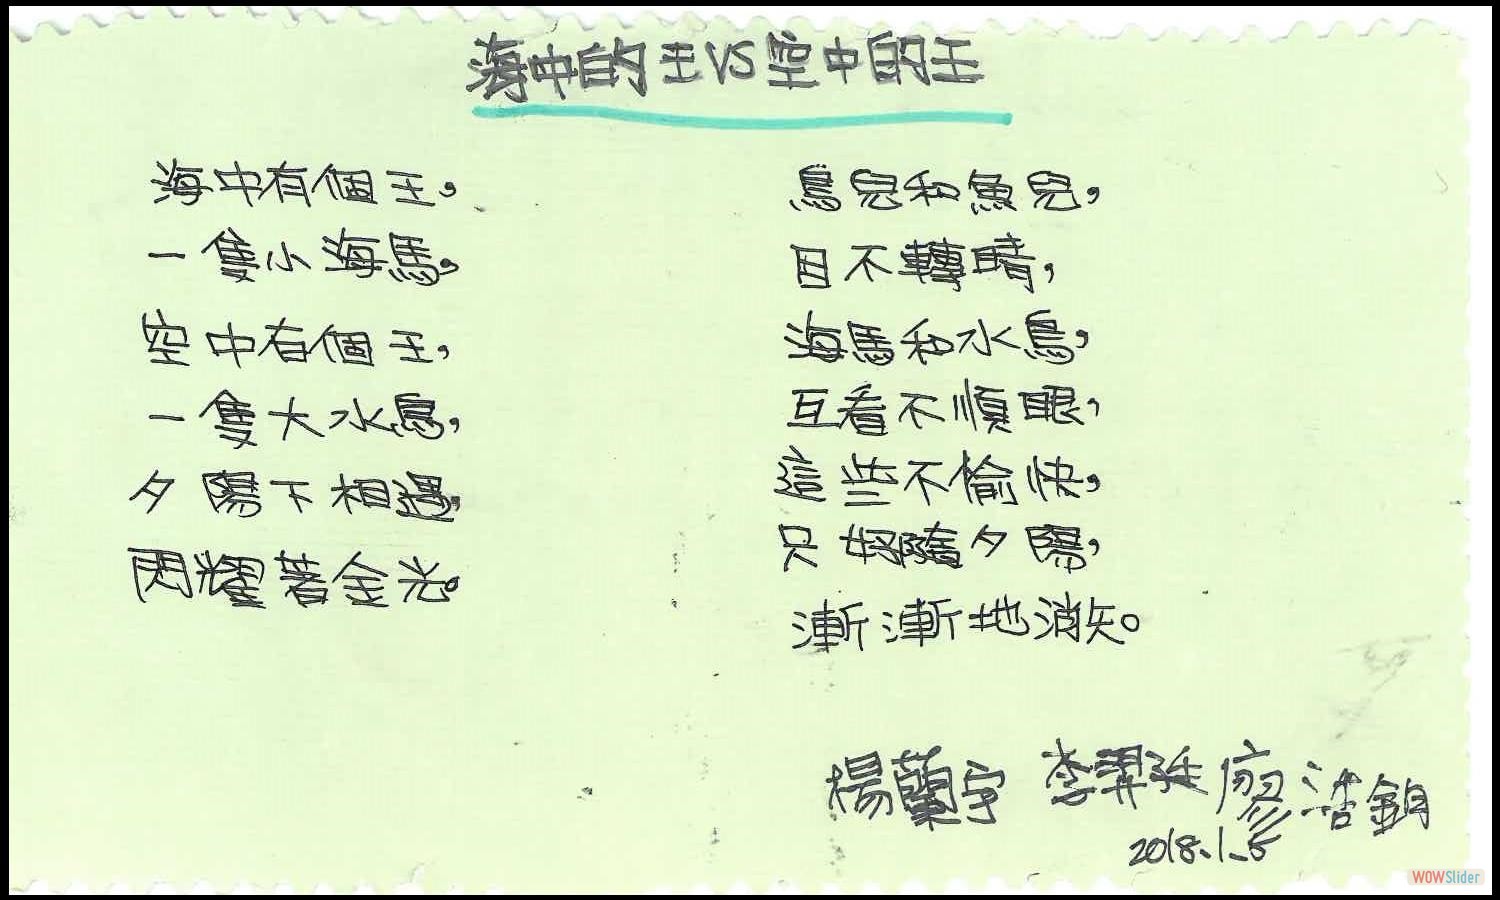 海中的王VS空中的王
海中有個王，
一隻小海馬，
空中有個王，
一隻大水鳥，
夕陽下相遇，
閃耀著金光。
鳥兒和魚兒，
目不轉睛，
海馬和水鳥，
互看不順眼，
這些不愉快，
只好隨夕陽，
漸漸地消失。
楊蘭宇 李羿廷 廖浩鈞
2018.1.5
WOWSlider